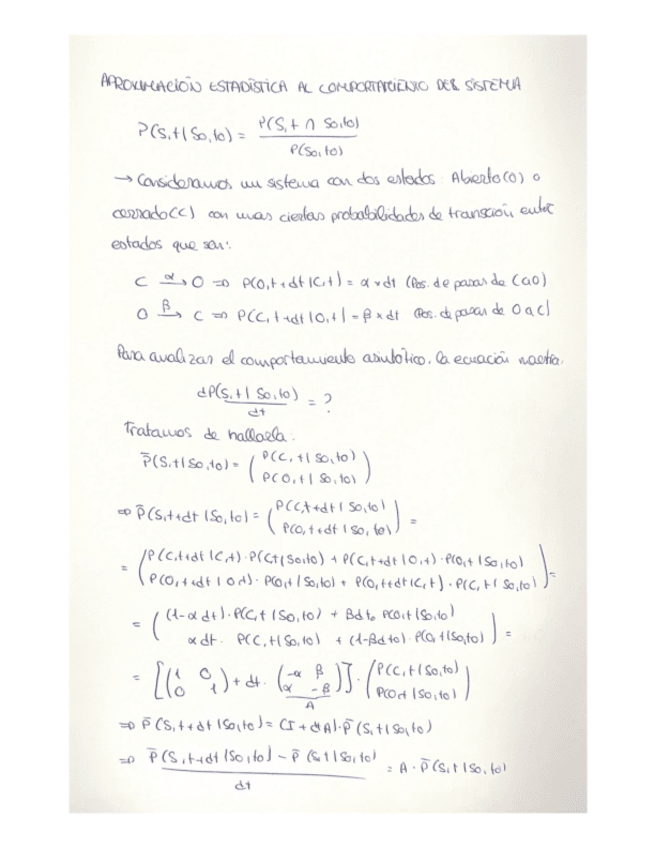 APROXIMACIÓN ESTADÍSTICA AL COMPORTAMIENTO DEL SISTEMA
P(S,t|So,to) = P(S,t ∩ So,to) / P(So,to)
→ Consideramos un sistema con dos estados: Abierto(O) o
cerrado(C) con unas ciertas probabilidades de transición entre
estados que son:
C →α O ⇒ P(O,t+dt|C,t) = α × dt (Pos. de pasar de C a O)
O →β C ⇒ P(C,t+dt|O,t) = β × dt (Pos. de pasar de O a C)
Para analizar el comportamiento asintótico, la ecuación
dP(S,t|So,to) / dt = ?
Tratamos de hallarla:
P̄(S,t|So,to) = ( P(C,t|So,to) P(O,t|So,to) )
⇒ P̄(S,t+dt|So,to) = ( P(C,t+dt|So,to) P(O,t+dt|So,to) ) =
= ( P(C,t+dt|C,t)·P(C,t|So,to) + P(C,t+dt|O,t)·P(O,t|So,to)
P(O,t+dt|O,t)·P(O,t|So,to) + P(O,t+dt|C,t)·P(C,t|So,to) ) =
= ( (1-α dt)·P(C,t|So,to) + βdto P(O,t|So,to)
α dt · P(C,t|So,to) + (1-βdto)·P(O,t|So,to) ) =
= [ (1 0 0 1) + dt · (-α β α -β) ] · ( P(C,t|So,to) P(O,t|So,to) )
A
⇒ P̄(S,t+dt|So,to) = (I + dtA)·P̄(S,t|So,to)
⇒ P̄(S,t+dt|So,to) - P̄(S,t|So,to) / dt = A · P̄(S,t|So,to)